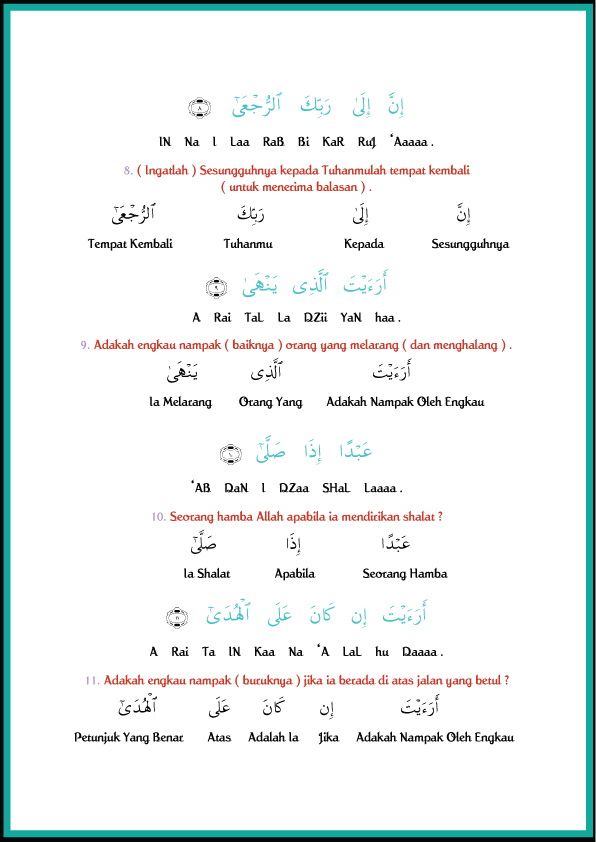 إِنَّ إِلَىٰ رَبِّكَ ٱلرُّجْعَىٰٓ ٨
IN Na I Laa RaB Bi KaR RuJ ‘Aaaaa .
8. ( Ingatlah ) Sesungguhnya kepada Tuhanmulah tempat kembali
( untuk menerima balasan ) .
إِنَّ إِلَىٰ رَبِّكَ ٱلرُّجْعَىٰٓ
Tempat Kembali Tuhanmu Kepada Sesungguhnya
أَرَءَيْتَ ٱلَّذِى يَنْهَىٰ ٩
A Rai TaL La DZii YaN haa .
9. Adakah engkau nampak ( baiknya ) orang yang melarang ( dan menghalang ) .
أَرَءَيْتَ ٱلَّذِى يَنْهَىٰ
Ia Melarang Orang Yang Adakah Nampak Oleh Engkau
عَبْدًا إِذَا صَلَّىٰٓ ١٠
‘AB DaN I DZaa SHaL Laaaa .
10. Seorang hamba Allah apabila ia mendirikan shalat ?
عَبْدًا إِذَا صَلَّىٰٓ
Ia Shalat Apabila Seorang Hamba
أَرَءَيْتَ إِن كَانَ عَلَى ٱلْهُدَىٰٓ ١١
A Rai Ta IN Kaa Na ‘A LaL hu Daaaa .
11. Adakah engkau nampak ( buruknya ) jika ia berada di atas jalan yang betul ?
أَرَءَيْتَ إِن كَانَ عَلَى ٱلْهُدَىٰٓ
Petunjuk Yang Benar Atas Adalah Ia Jika Adakah Nampak Oleh Engkau